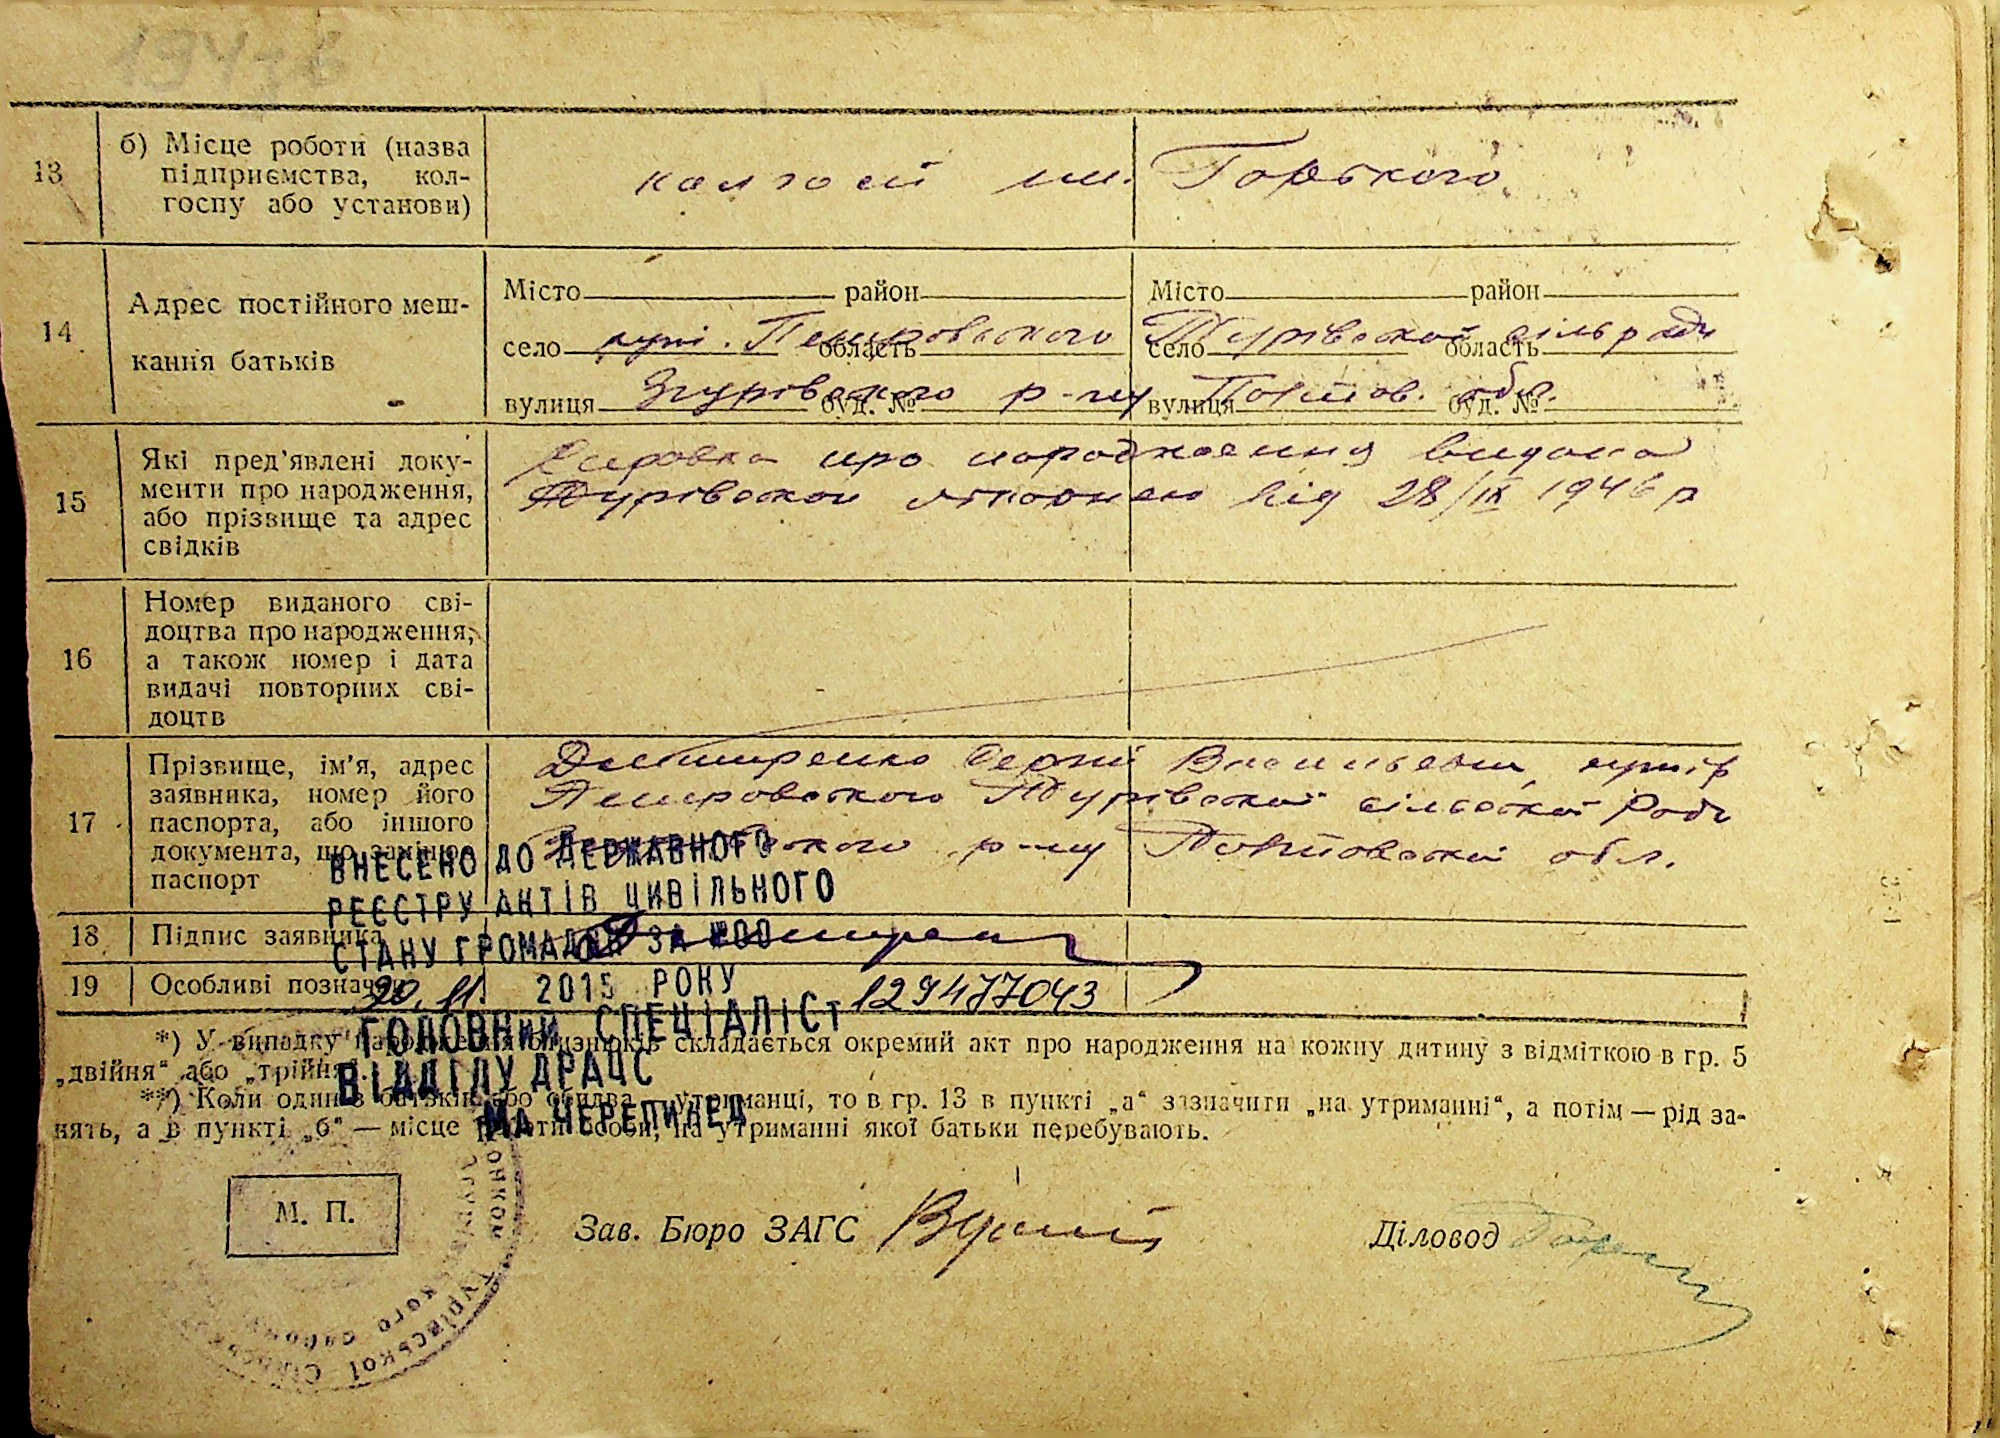 13 б) Місце роботи (назва
підприємства, кол-
госпу або установи)
колгосп ім. Горького
14 Адрес постійного меш-
кання батьків
Місто район Місто район
село хут. Петровского область село Турівської сільради область
вулиця Згурівского р-ну буд. № вулиця Полтов. обл. буд. №
15 Які пред'явлені доку-
менти про народження,
або прізвище та адрес
свідків
Справка про народження видана
Турівскою лікарнею від 28/IX 1946 р
16 Номер виданого сві-
доцтва про народження,
а також номер і дата
видачі повторних сві-
доцтв
17 Прізвище, ім'я, адрес
заявника, номер його
паспорта, або іншого
документа, що замінює
паспорт
Сергій хутір
Петровского Турівскої сільскої Ради
р-ну Полтовскої обл.
ВНЕСЕНО ДО ДЕРЖАВНОГО
РЕЄСТРУ АКТІВ ЦИВІЛЬНОГО
СТАНУ ГРОМАДЯН ЗА №00
18 Підпис заявника
19 Особливі позначки
20.11. 2015 РОКУ 129477043
ГОЛОВНИЙ СПЕЦІАЛІСТ
ВІДДІЛУ ДРАЦС
МА ЧЕРЕПИНЕЦ
*) У випадку народження близнюків складається окремий акт про народження на кожну дитину з відміткою в гр. 5
„двійня“ або „трійня“.
**) Коли один з батьків або обидва — утриманці, то в гр. 13 в пункті „а“ зазначити „на утриманні“, а потім — рід за-
нять, а в пункті „б“ — місце роботи особи, на утриманні якої батьки перебувають.
М. П.
Зав. Бюро ЗАГС
Діловод
Турівської